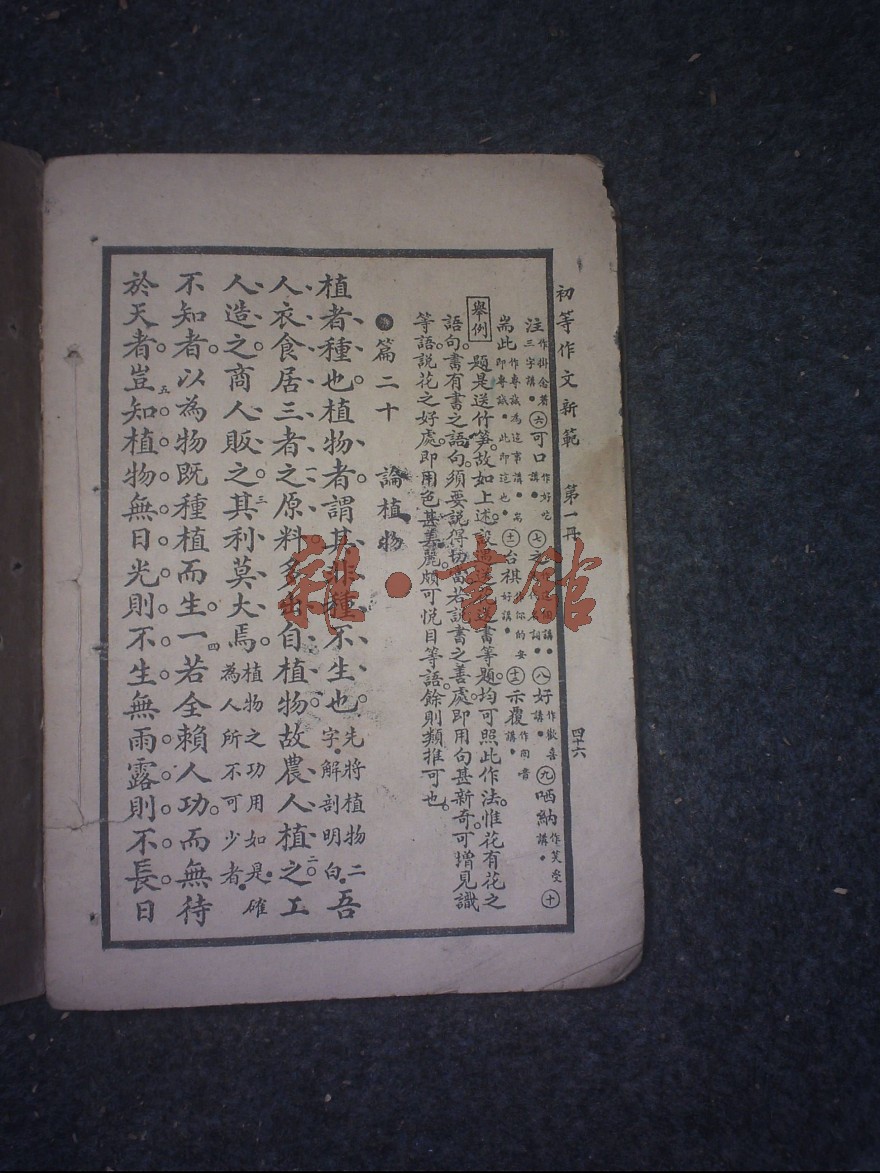 初等作文新範 第一冊 四十六
注作掛念著三字講。㊅可口作好吃講。㊆之 ㊇好作歡喜講。㊈哂納作笑受講。㊉
耑此作專誠為這事講。耑即專誠。此即這也。 台祺 你的安好講。 示覆作回音講。
舉例 題是送竹笋。故如上述。設 書等題。均可照此作法。惟花有花之
語句。書有書之語句。須要說得切當。若說書之善處。即用句甚新奇。可增見識
等語。說花之好處。即用色甚美麗。頗可悅目等語。餘則類推可也。
篇二十 論植物
植者。種也。植物者。謂其非種不生也。先將植物二字。解剖明白。吾
人衣食居三者之原料。多出自植物。故農人植之。工
人造之。商人販之。其利莫大焉。植物之功用如是。確為人所不可少者。
不知者。以為物既種植而生。一若全賴人功。而無待
於天者。豈知植物無日光則不生。無雨露則不長。日
雜·書館